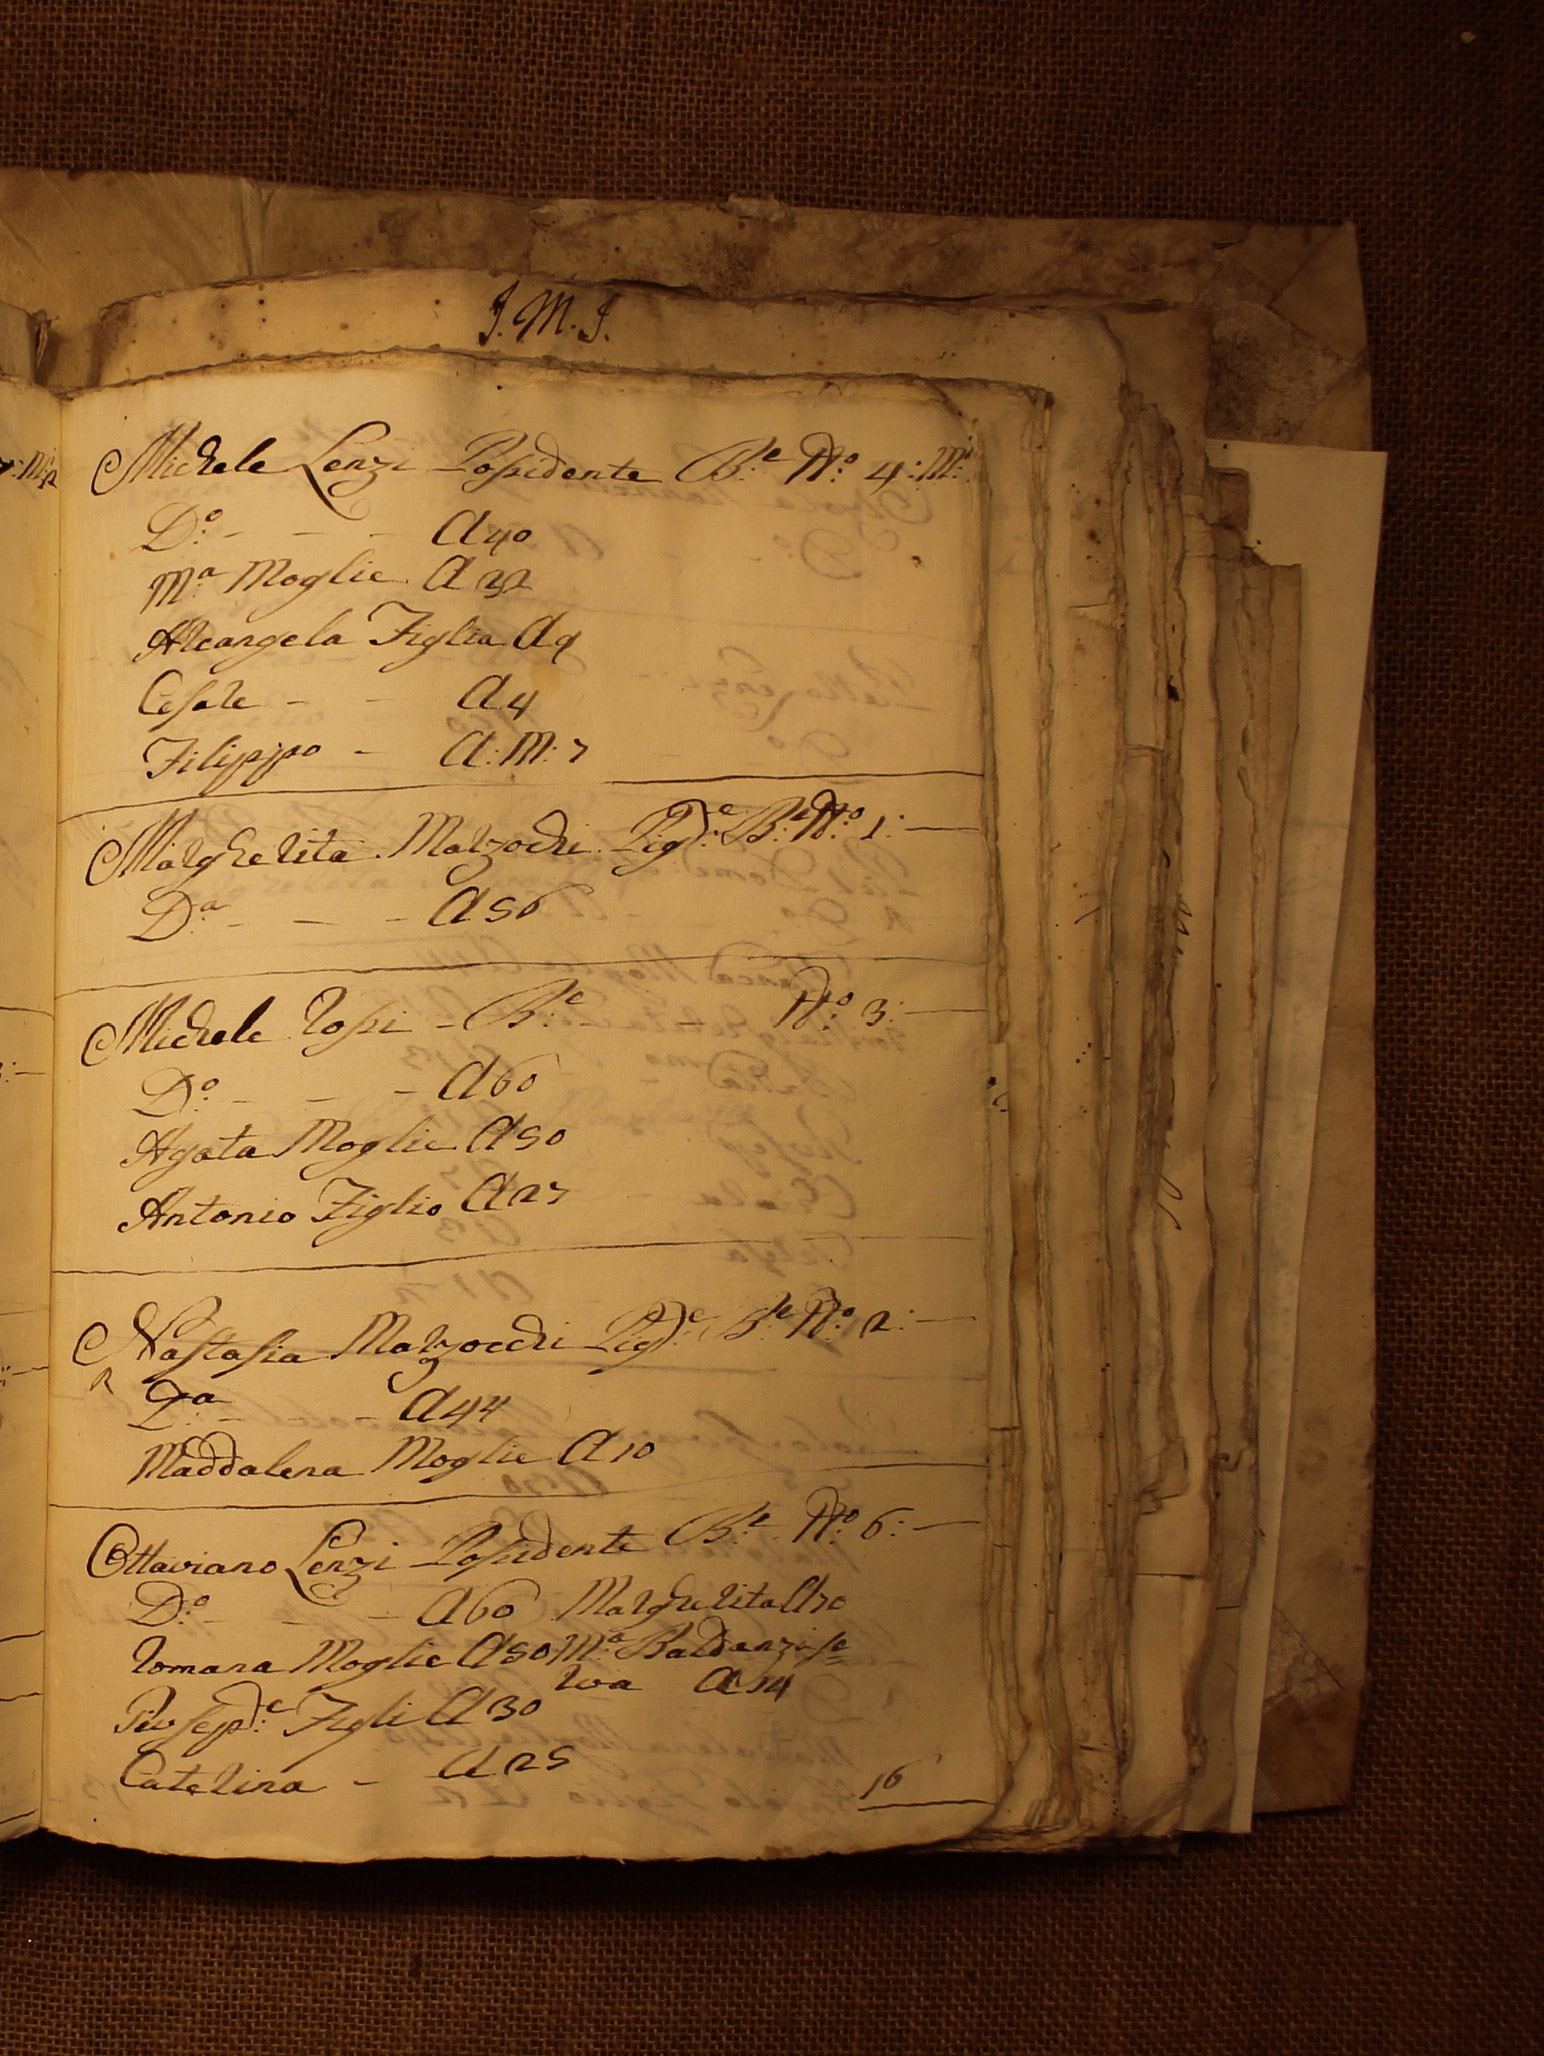 J. M. J.
Michele Lenzi Possidente B.e N.o 4: M:1
D.o - - - A 40
M.a Moglie A 32
Arcangela Figlia A 9
Cesare - - A 4
Filippo - A: M: 7
Margherita Marzochi Pig.e B.e N.o 1: —
D.a - - - A 56
Michele Rossi - B.e N.o 3: —
D.o - - - A 60
Agata Moglie A 50
Antonio Figlio A 27
Nastasia Marzocchi Pig.e B.e N.o 2: —
R D.a - - A 44
Maddalena Moglie A 10
Ottaviano Lenzi Possidente B.e N.o 6: —
D.o - - - A 60 Margherita A 70
Romana Moglie A 50 M.a Baldanzi se
rva A 14
Giusep.e Figli A 30
Caterina - A 25
16